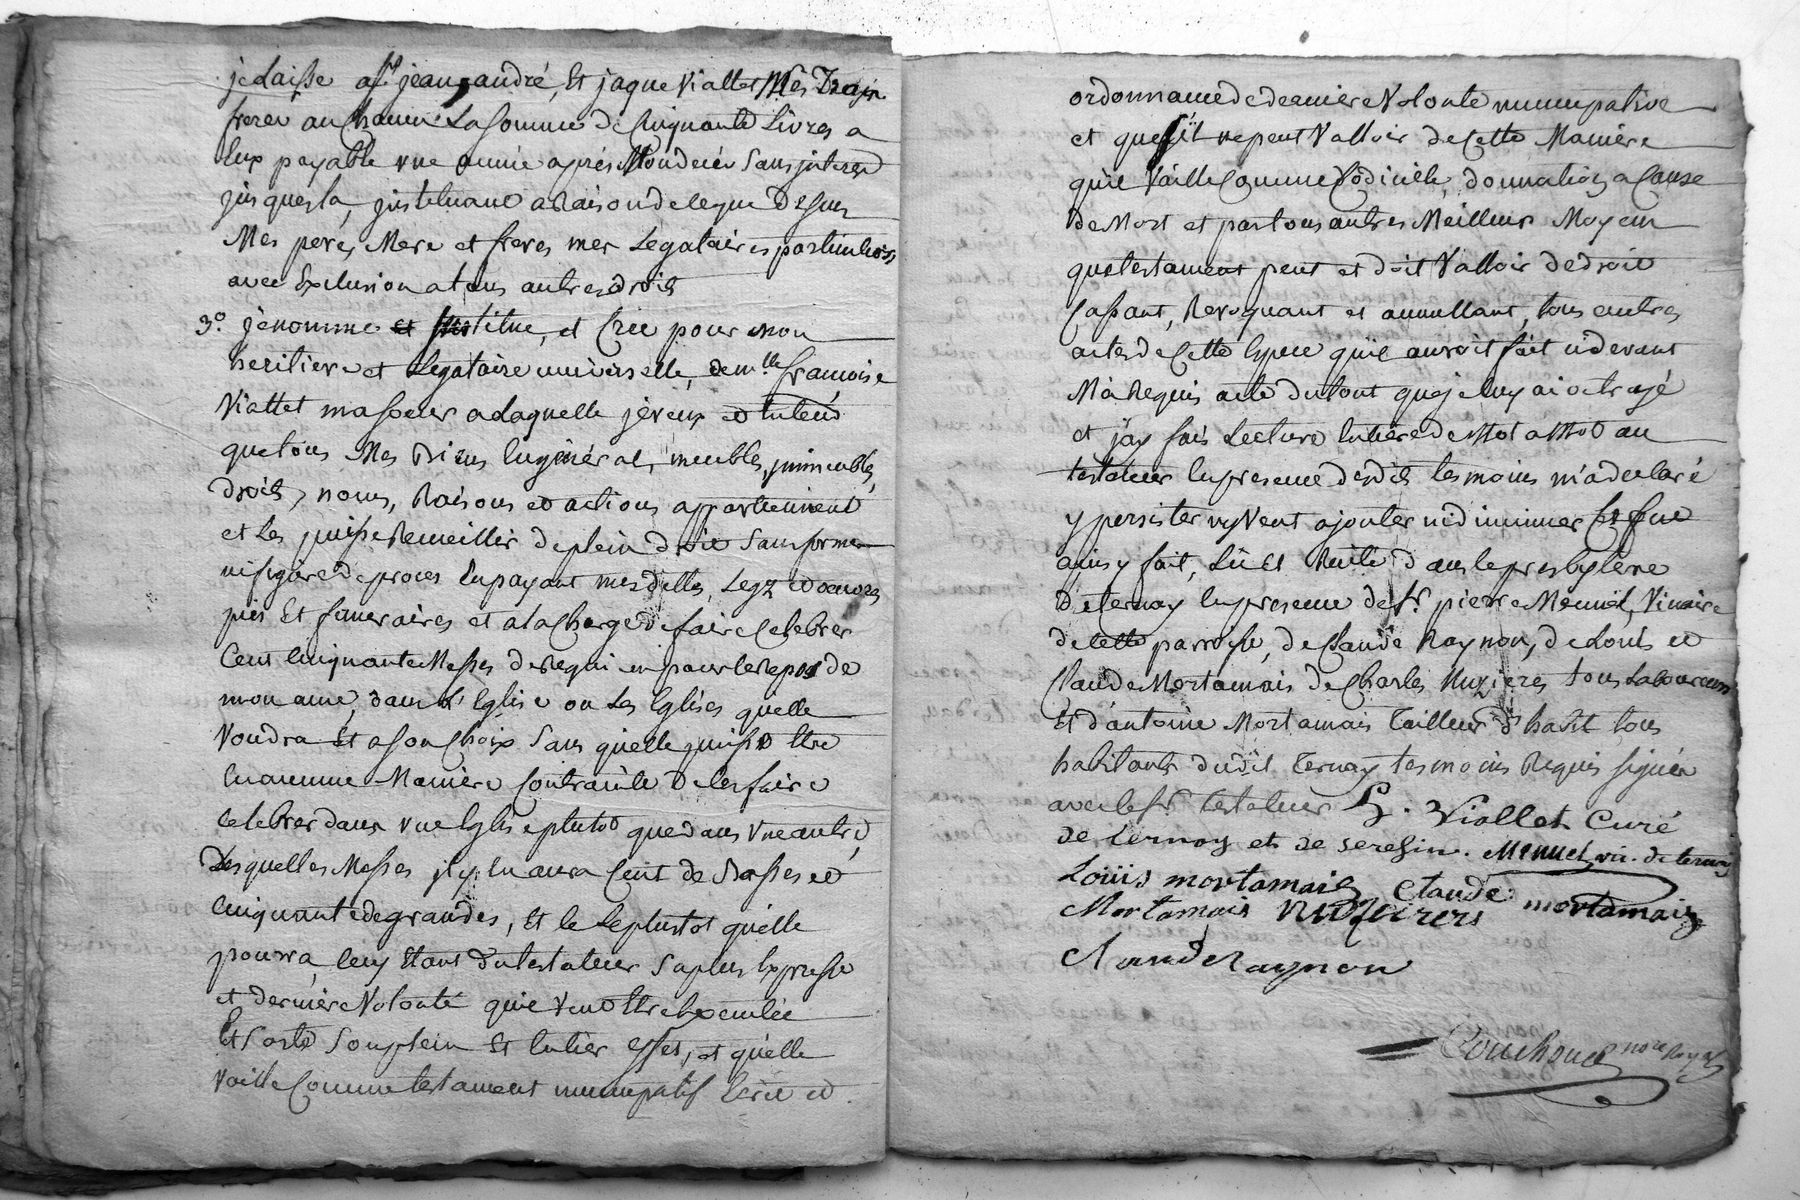 je Laisse a srs jean, andré, Et jaque Viallet Mes Trois
freres au Chacun La somme de Cinquante Livres a
Eux payable une année aprés Mon decés Sans interest
jusques la, instituant a Raison de legue Dessus
Mes pere, Mere et freres mes Legataires particuliers
avec Exclusion a tous autres droits
3.° je nomme et institue, et Crée pour mon
heritiere et Legataire universelle, dem.lle francoise
Viallet ma soeur a laquelle je veux et Entend
que tous Mes Biens En général, meubles, immeubles,
droits, noms, Raisons et actions appartiennent
et Les puisse Recueillir de plein droit Sans forme
ni figure de proces En payant mes dettes, Legz et oeuvres
pies Et funeraires et a la Charge de faire Celebrer
Cent Cinquante Messes de Requiem pour le Repos de
mon ame, dans L'Eglise ou Les Eglises quelle
Voudra Et a son Choix Sans quelle puisse Etre
En aucune Maniere Contrainte De les faire
Celebrer dans une Eglise plutot que dans Une autre,
Desquelles Messes il y En aura Cent de Basses et
Cinquante de grandes, Et le Le plustot qu'elle
pourra, Cecy Etant du testateur Sa plus Expresse
et derniere Volonté qu'il veut Etre Executée
Et Sorte Son plein Et Entier effet, et qu'elle
Vaille Comme testament nuncupatif Ecrit et
ordonnance de derniere Volonté nuncupative
et que s'il ne peut Valloir de Cette Maniere
qu'il Vaille Comme Codicille, donnation a Cause
de Mort et par tous autres Meilleurs Moyens
que testament peut et doit Valloir de droit
Cassant, Revoquant et annullant, tous autres
actes de Cette Espece qu'il auroit fait cidevant
M'a Requis acte du tout que je luy ai octroyé
et j'ay fais Lecture Entiere de Mot a Mot au
testateur En presence desdits tesmoins m'a declaré
y persister ny Veut ajouter ni diminuer Ce fut
ainsy fait, Lû Et Recité dans le presbytere
de ternay En presence de Sr. pierre Menuel, Vicaire
de Cette parroisse, de Claude Raynon, de Louis et
Claude Mortamais de Charles Nuzieres tous Laboureurs
Et d'antoine Mortamais Tailleur d'habit tous
habitants dudit Ternay tesmoins Requis signés
avec le sr. testateur Viallet Curé
de ternay et de seresin. Menuel vic. de ternay
Louis mortamais Claude mortamais
Mortamais nuzieres
Claude Raynon
Couchoud nore Royal